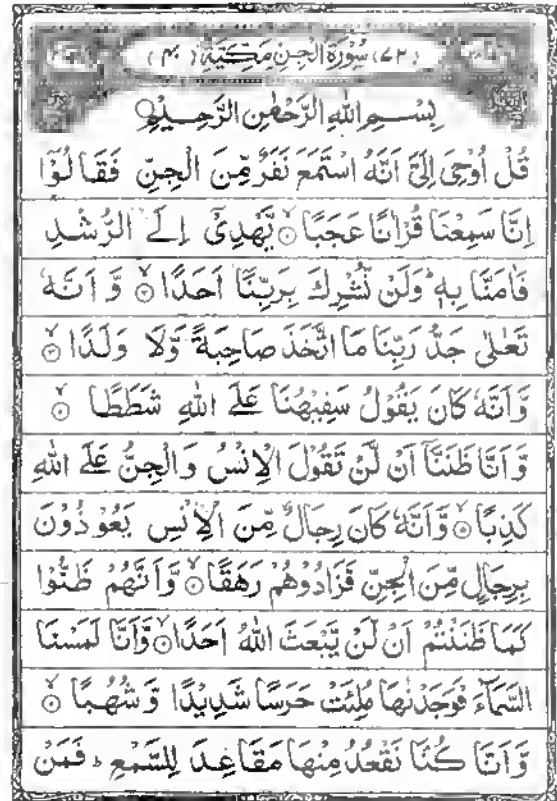 (٧٢) سُوْرَةُ الْجِنِّ مَكِّيَّةٌ (٤٠)
بِسْمِ اللهِ الرَّحْمٰنِ الرَّحِيْمِ
قُلْ اُوْحِىَ اِلَىَّ اَنَّهُ اسْتَمَعَ نَفَرٌ مِّنَ الْجِنِّ فَقَالُوْٓا
اِنَّا سَمِعْنَا قُرْاٰنًا عَجَبًا ۙ﴿۱﴾ يَّهْدِىْٓ اِلَى الرُّشْدِ
فَاٰمَنَّا بِهٖ ؕ وَلَنْ نُّشْرِكَ بِرَبِّنَاۤ اَحَدًا ۙ﴿۲﴾ وَّ اَنَّهٗ
تَعٰلٰى جَدُّ رَبِّنَا مَا اتَّخَذَ صَاحِبَةً وَّلَا وَلَدًا ۙ﴿۳﴾
وَّاَنَّهٗ كَانَ يَقُوْلُ سَفِيْهُنَا عَلَى اللهِ شَطَطًا ۙ﴿۴﴾
وَّاَنَّا ظَنَنَّاۤ اَنْ لَّنْ تَقُوْلَ الْاِنْسُ وَالْجِنُّ عَلَى اللهِ
كَذِبًا ۙ﴿۵﴾ وَّاَنَّهٗ كَانَ رِجَالٌ مِّنَ الْاِنْسِ يَعُوْذُوْنَ
بِرِجَالٍ مِّنَ الْجِنِّ فَزَادُوْهُمْ رَهَقًا ۙ﴿۶﴾ وَّاَنَّهُمْ ظَنُّوْا
كَمَا ظَنَنْتُمْ اَنْ لَّنْ يَّبْعَثَ اللهُ اَحَدًا ۙ﴿۷﴾ وَّاَنَّا لَمَسْنَا
السَّمَآءَ فَوَجَدْنٰهَا مُلِئَتْ حَرَسًا شَدِيْدًا وَّشُهُبًا ۙ﴿۸﴾
وَّاَنَّا كُنَّا نَقْعُدُ مِنْهَا مَقَاعِدَ لِلسَّمْعِ ؕ فَمَنْ